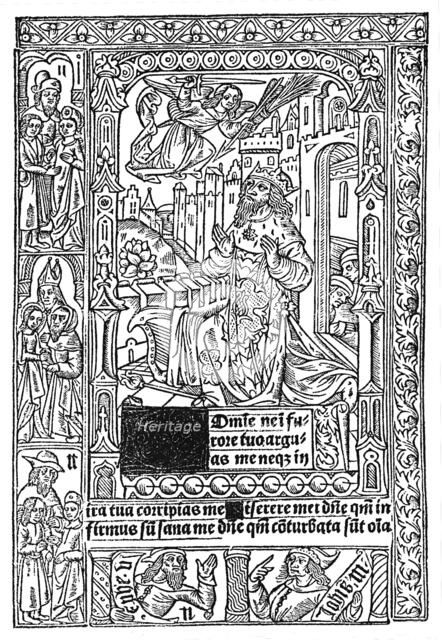 Heritage
Dm̄e ne ī fu-
rore tuo argu-
as me neqz in
ira tua corripias me Miserere mei dn̄e qm̄ in
firmus sū sana me dn̄e qm̄ cōturbata sūt oīa